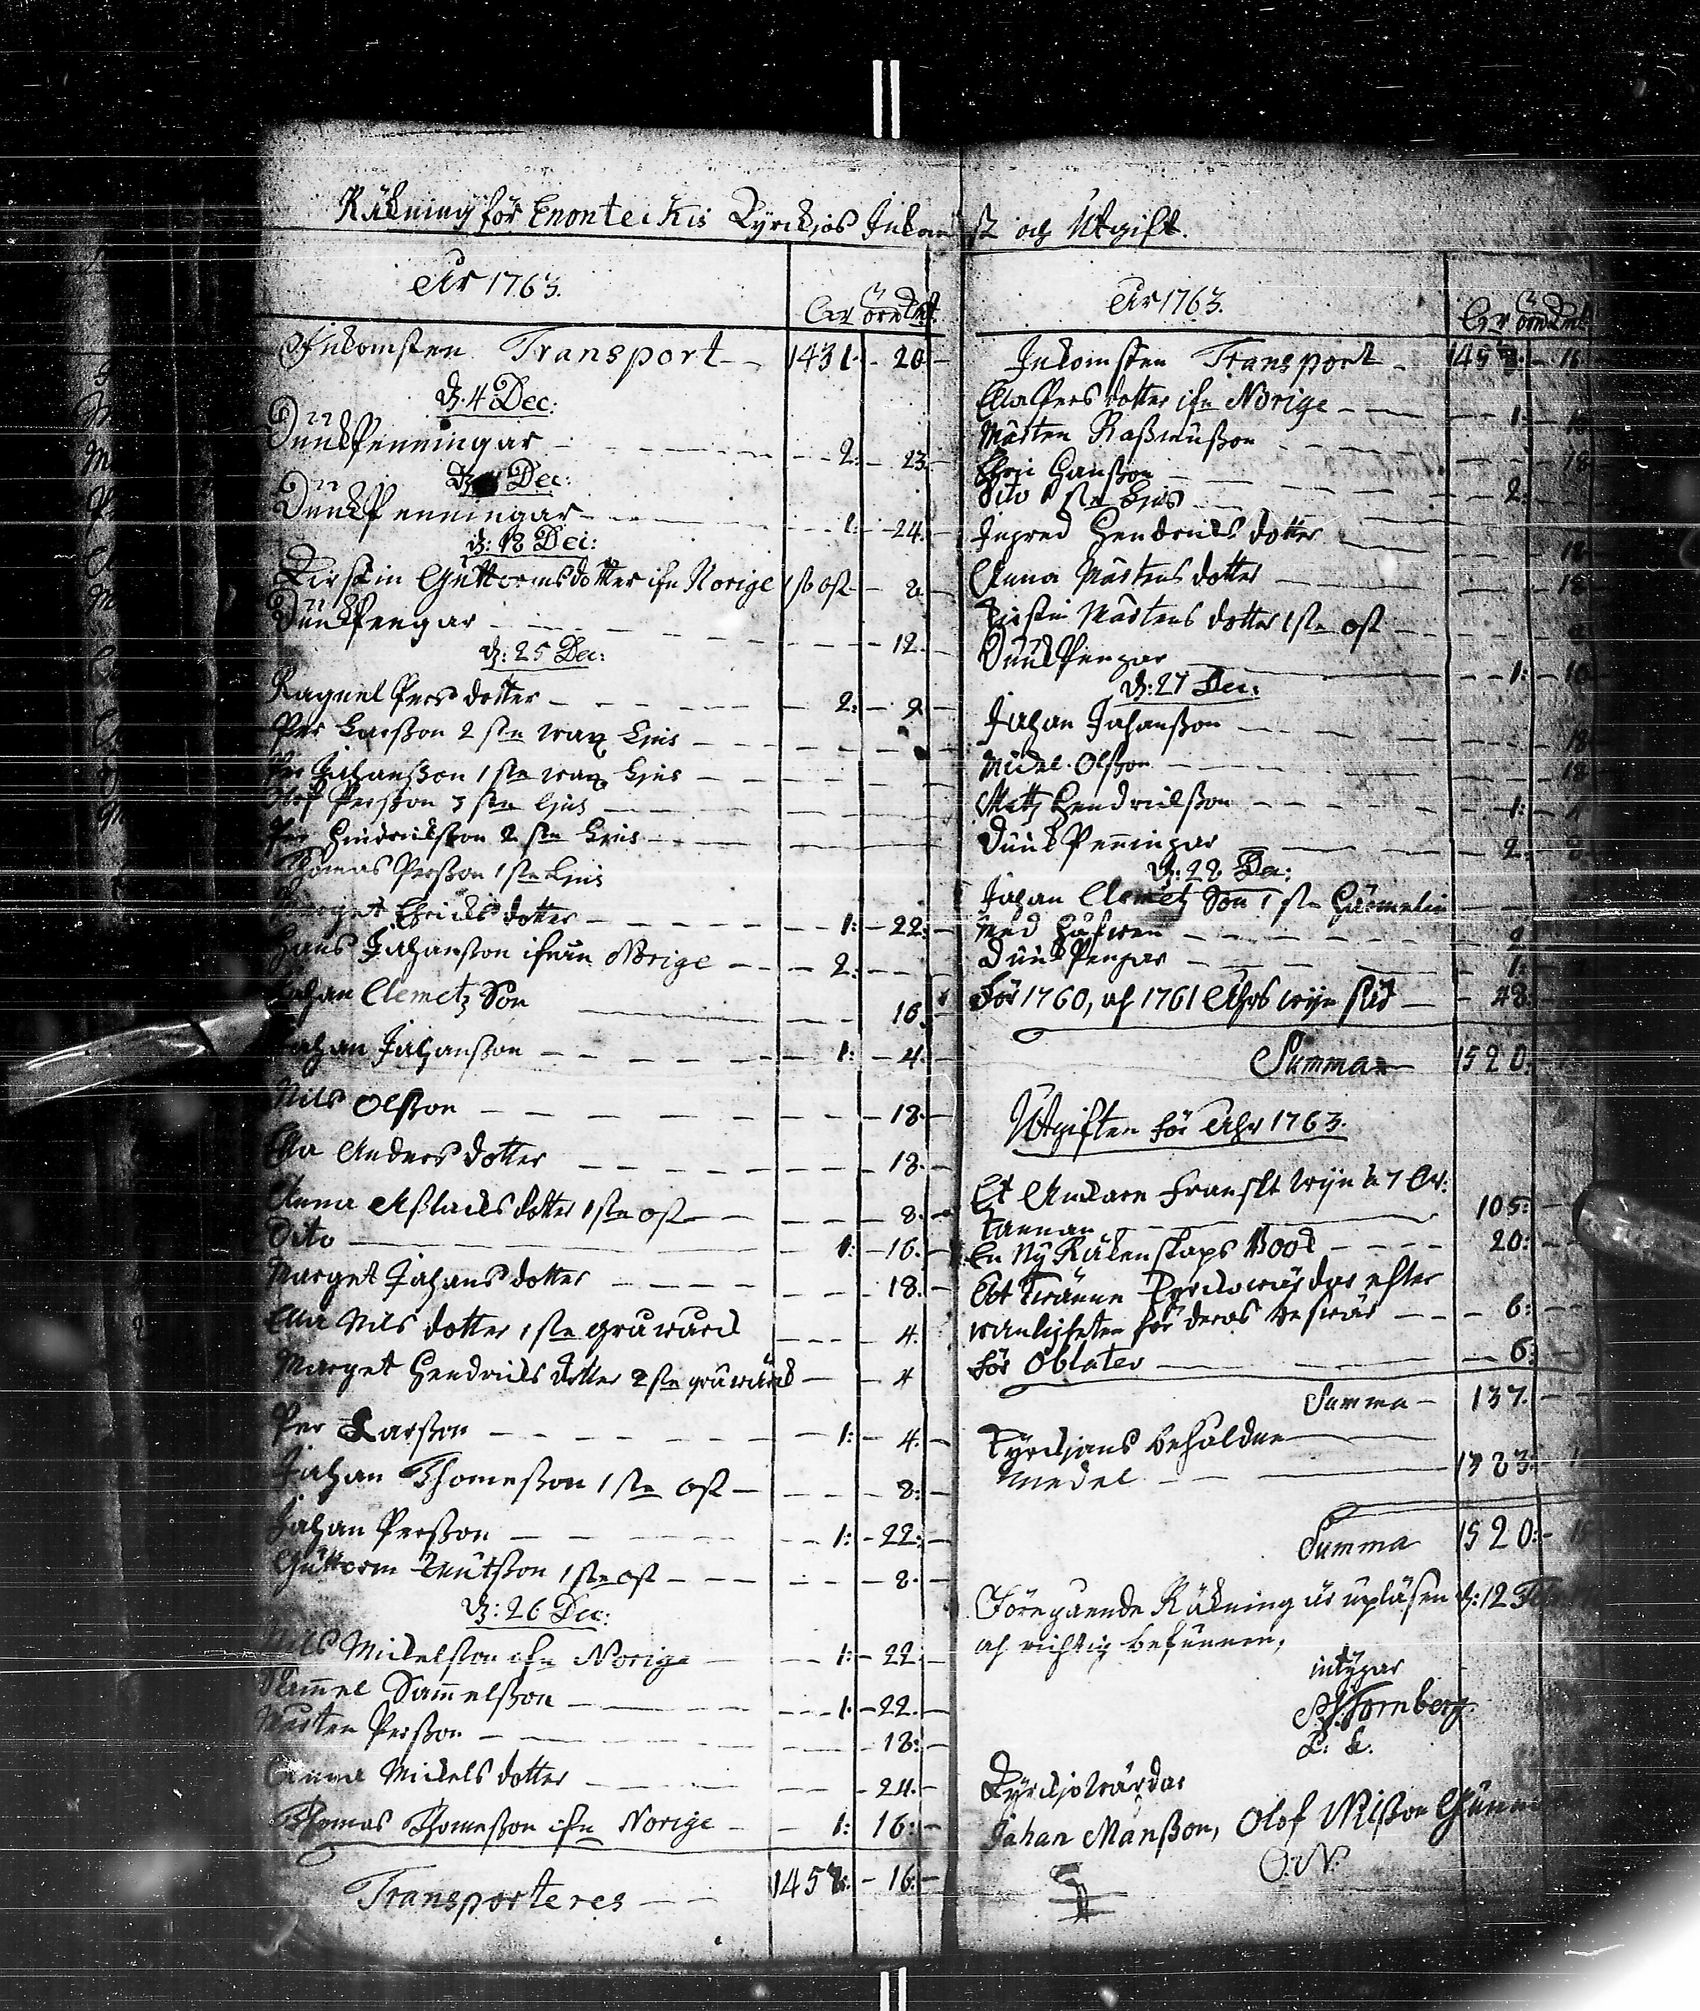 Räkning för Enonteckis Kyrckjos Inkomst och Utgift.
Åhr 1763.
Inkomsten Transport 1431:-20.
d. 4 Dec:
Bänk Penningar 2:-23.
Dec:
Bänk Penningar 1:-24.
d: 18 Dec:
Kirstin Guttormsdotter ifrn Norige 1 st ost 8.
Bänk Pengar 12.
d: 25 Dec:
Ragnel Pers dotter 2:-9
Per Larsson 2 stn wax Ljus
Per Johansson 1 stn wax Ljus
Olof Persson 3 stn Ljus
Per Hindricksson 2 stn Ljus
Thomas Persson 1 stn Ljus
Marget Erichs dotter 1:-22:
Hans Johansson ifrån Norige 2:
Johan Clemetz Son 16.
Johan Johansson 1:-4.
Nils Olsson 18.
Ella Anders dotter 18.
Anna Aslacks dotter 1 stn ost 8.
Dito 1:-16.
Marget Johans dotter 18.
Ella Nils dotter 1 stn gråwärck 4.
Marget Hendricks dotter 2 stn gråwärck 4
Per Larsson 1:-4.
Johan Thomesson 1 stn ost 8:
Johan Persson 1:-22:
Guttorm Knutsson 1 stn ost 8.
d: 26 Dec:
Nils Mickelsson ifrn Norige 1:-22.
Sammel Sammelsson 1:-22.
Mårten Persson 18:
Anna Mickels dotter 24.
Thomas Thomesson ifrn Norige 1:16:
Transporteres 1458:-16.
Åhr 1763.
Inkomsten Transport 1458:-16
Ella Pers dotter ifrn Norige 1:-16
Mårten Rassmusson 18
Eric Hansson 2:
Dito stn Ljus
Ingred Hendricks dotter 18
Anna Mårtens dotter 18
Kirstin Mårtens dotter 1 stn ost
Bänk Pengar 1:-10
d: 27 Dec:
Johan Johansson 18
Mickel Olsson 18
Matz Hendricksson 1:
Bänk Penningar 2:
d: 28 Dec:
Johan Clemetz Son 1 stn
med 2
Bänk Pengar 1:
För 1760, och 1761 Åhrs wijn 48.
Summa 1520:
Utgiften för Åhr 1763.
Et Anckare Franskt Wijn à 7 Dr:
Kannan 105:
En Ny Räkenskaps Book 20:
Åt twänne Kyrckowärdar efter
wanligheten för deras beswär 6:
För Oblater 6:
Summa 137.
Kyrckjans behåldne
medel 1383:
Summa 1520:-16
Föregående Räkning är upläsen d: 12
och richtig befunnen,
intygar
Tornberg
Kyrckjo Wärdar
Johan Månsson, Olof Nilsson
O:N: